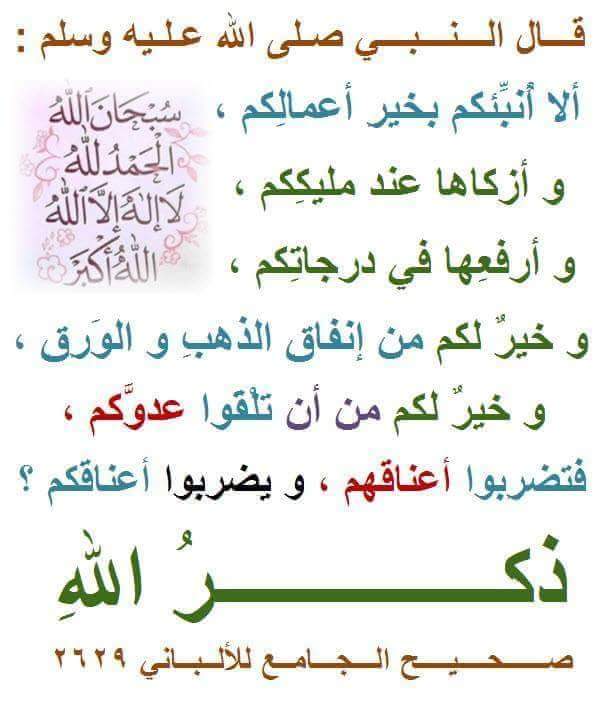 قال النبي صلى الله عليه وسلم :
ألا أنبِّئكم بخيرِ أعمالِكم ،
و أزكاها عند مليكِكم ،
و أرفعِها في درجاتِكم ،
و خيرٌ لكم من إنفاق الذهبِ و الوَرِقِ ،
و خيرٌ لكم من أن تلْقَوا عدوَّكم ،
فتضربوا أعناقهم ، و يضربوا أعناقكم ؟
ذكرُ اللهِ
صحيح الجامع للألباني ٢٦٢٩
سُبْحَانَ اللهُ
الْحَمْدُ للهُ
لَا إِلهَ إِلَّا اللهُ
اللهُ أَكْبَر